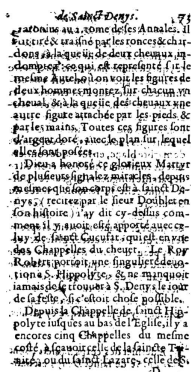 de Sainct Denys. 175
ratonius au 2. tome de ses Annales. Il
fut tiré & trasiné par les ronces & char-
dons, à la queuë de deux cheuaux in-
domptez: ce qui est representé icy le
mesme Autel, où l'on voit les figures de
deux hommes montez sur chacun vn
cheual, & à la queuë des cheuaux vne
autre figure attachée par les pieds &
par les mains. Toutes ces figures sont
d'argent doré, auec le plan sur lequel
elles sont posées.
Dieu a honoré ce glorieux Martyr
de plusieurs signalez miracles, depuis
mesmes que son corps est à sainct De-
nys, recitez par le sieur Doublet en
son histoire: i'ay dit cy-dessus com-
me il y auoit esté apporté auec ce-
luy de sainct Cucufat, qui est en vne
des Chappelles du cheuet. Le Roy
Robert portoit vne singuliere deuo-
tion à S. Hippolyte, & ne manquoit
iamais de se trouuer à S. Denys le iour
de sa feste, si c'estoit chose possible.
Depuis la Chappelle de sainct Hip-
polyte iusques au bas de l'Eglise, il y a
encores cinq Chappelles du mesme
costé, à sçauoir celle de la saincte Tri-
nité, ou du sainct Lazare, celle de S.